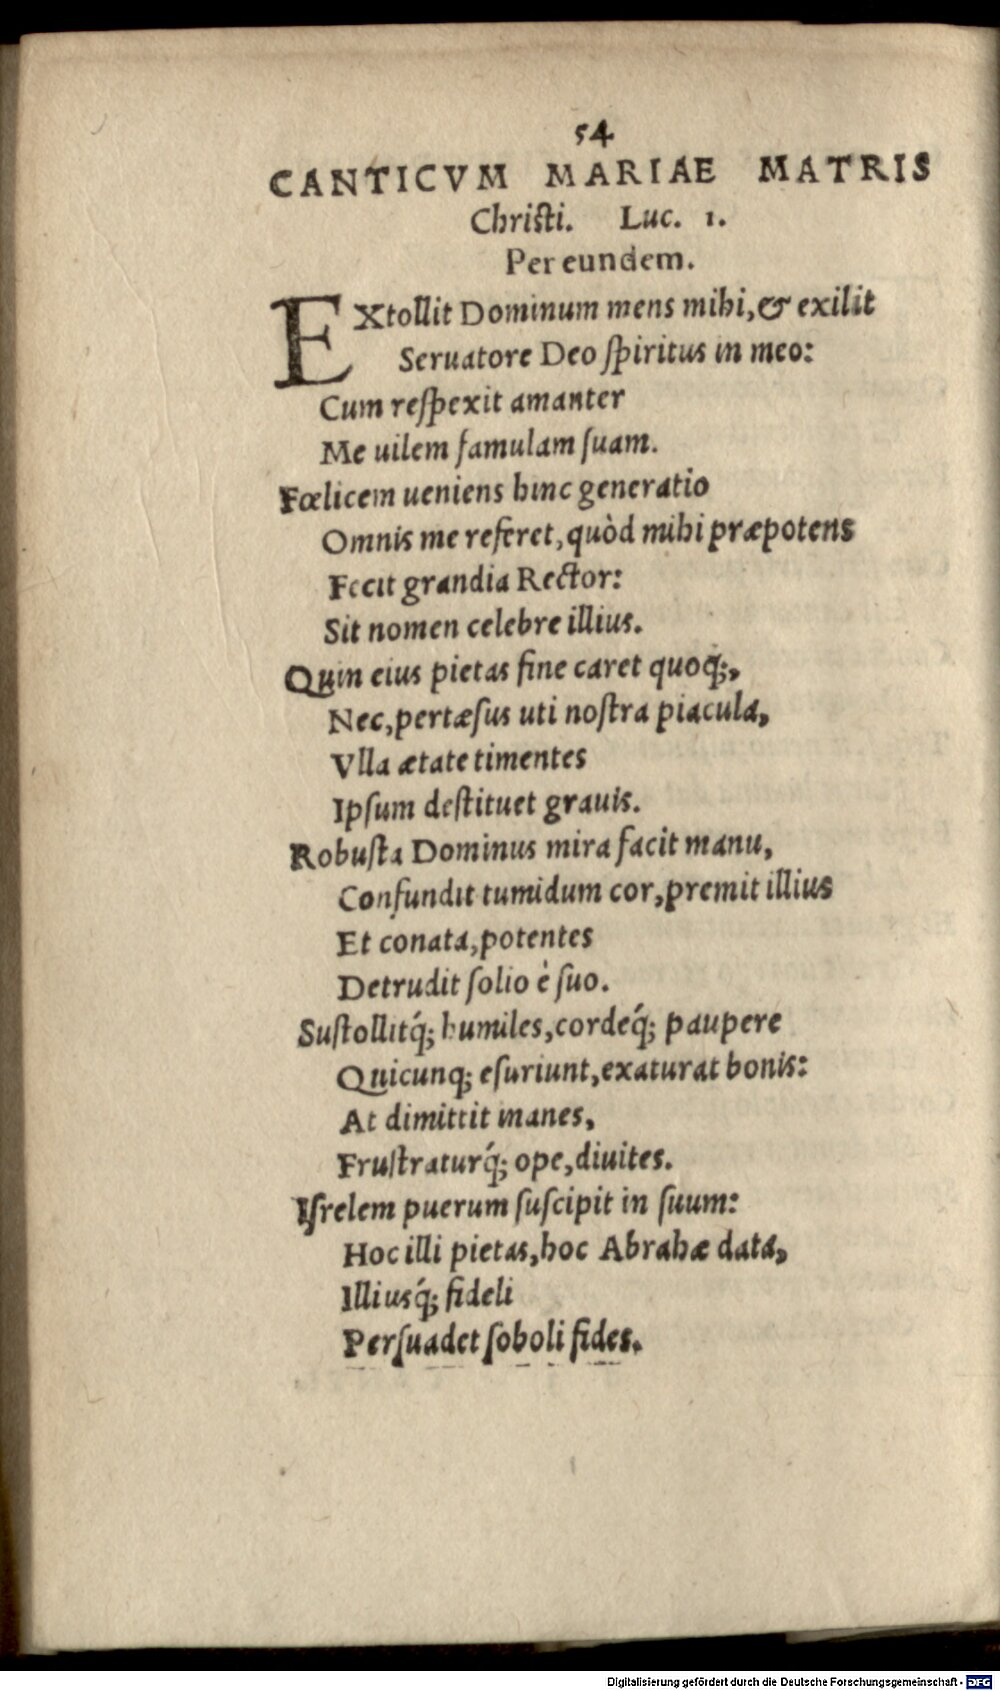 54
CANTICVM MARIAE MATRIS
Chriſti. Luc. 1.
Per eundem.
EXtollit Dominum mens mihi, & exilit
Seruatore Deo ſpiritus in meo:
Cum reſpexit amanter
Me uilem famulam ſuam.
Fœlicem ueniens hinc generatio
Omnis me referet, quòd mihi præpotens
Fecit grandia Rector:
Sit nomen celebre illius.
Quin eius pietas fine caret quoq;,
Nec, pertæſus uti noſtra piacula,
Vlla ætate timentes
Ipſum deſtituet grauis.
Robuſta Dominus mira facit manu,
Confundit tumidum cor, premit illius
Et conata, potentes
Detrudit ſolio è ſuo.
Suſtollitq́; humiles, cordeq́; paupere
Quicunq; eſuriunt, exaturat bonis:
At dimittit inanes,
Fruſtraturq́; ope, diuites.
Iſrelem puerum ſuſcipit in ſuum:
Hoc illi pietas, hoc Abrahæ data,
Illiusq́; fideli
Perſuadet ſoboli fides.
Digitalisierung gefördert durch die Deutsche Forschungsgemeinschaft - DFG